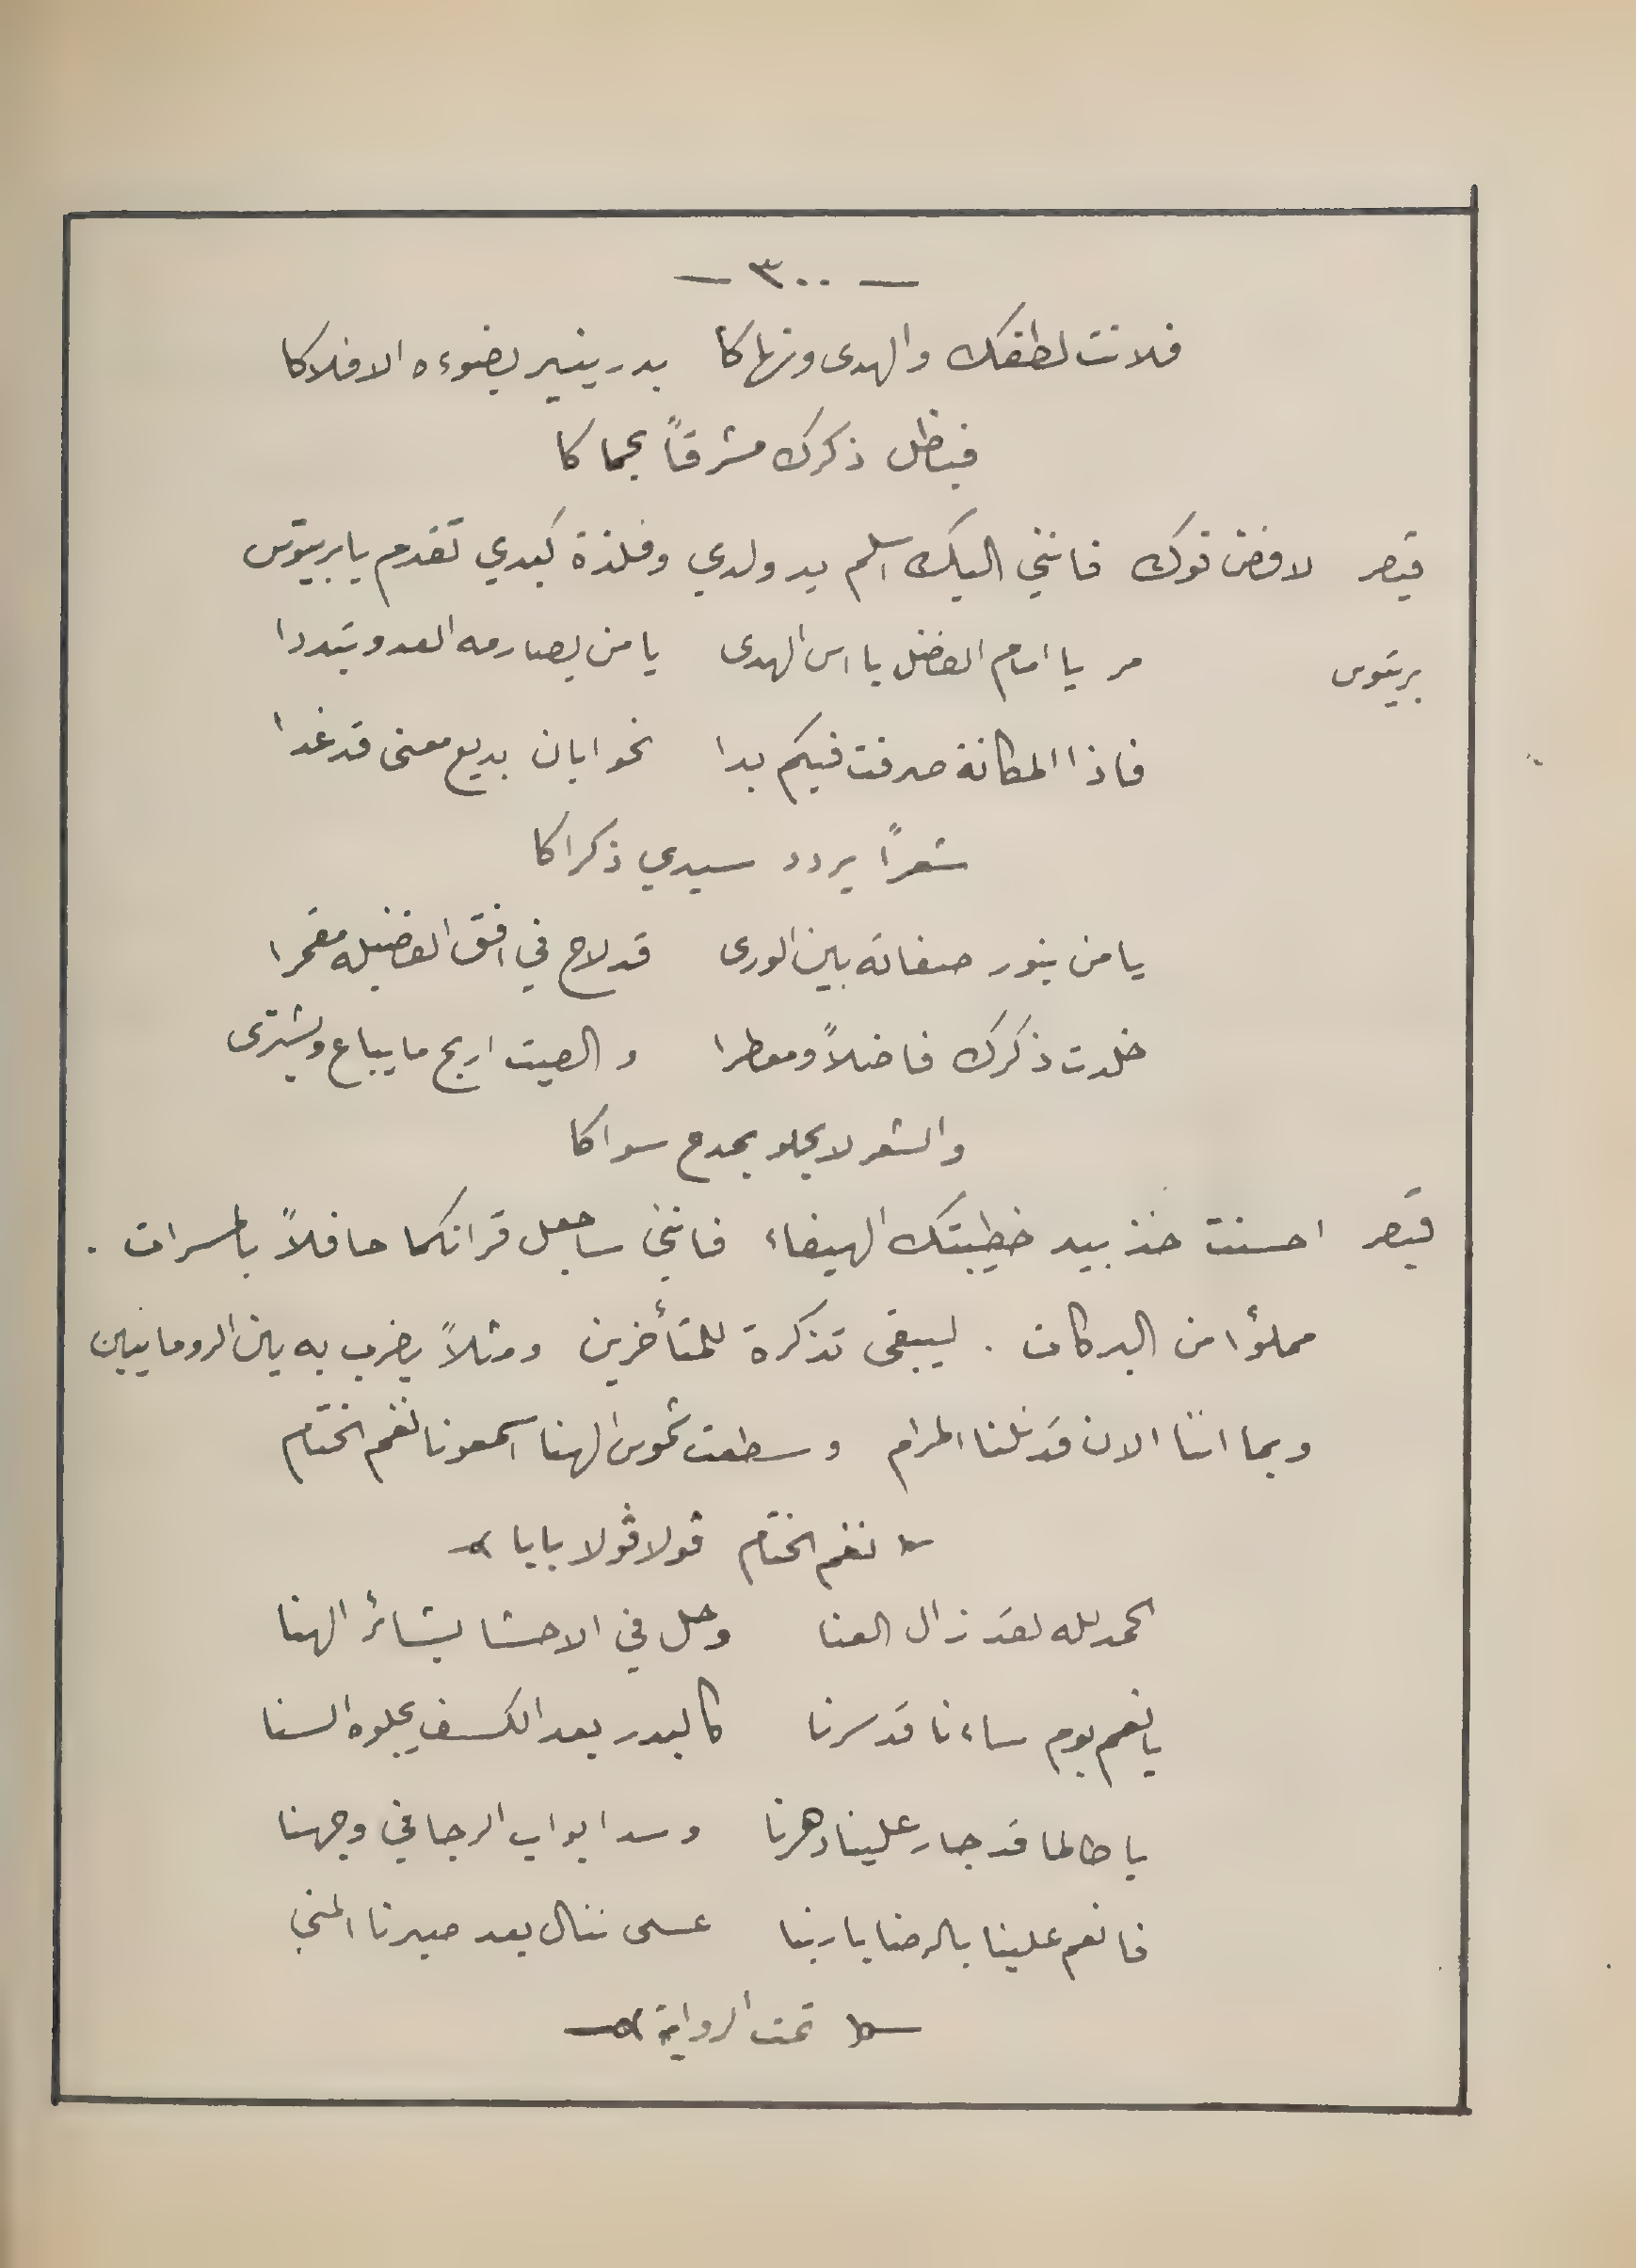 — ٣٠٠ —
فلانت لطفك والهدى ونهاكا بدر ينير بضوءه الافلاكا
فيظل ذكرك مشرقاً بحماكا
قيصر لا فض فوك فانني اليك اسلم يد ولدي وفلذة كبدي تقدم يا بريتوس
بريتوس مر يا امام الفضل يا اس الهدى يا من بصارمه العدو تبددا
فاذا المكانة صرفت فيكم بدا نحو ابان بديع معنى قد غدا
شعراً يردد سيدي ذكراكا
يا من بنور صفاته بين الورى قد لاح في افق الفضيله مقمرا
خلدت ذكرك فاضلاً ومعطرا والصيت اربح ما يباع ويشترى
والشعر لا يحلو بمدح سواكا
قيصر احسنت خذ بيد خطيبتك الهيفاء فانني ساجعل قرانكما حافلاً بالمسرات .
مملؤا من البركات . ليبقى تذكرة للمتأخرين ومثلاً يضرب به بين الرومانيين
وبما اننا الان قد نلنا المرام وسطعت شموس الهنا اسمعونا نغم الختام
نغم الختام قولا قولا بابا
الحمد لله لقد زال العنا وحل في الاحشا بشائر الهنا
يا نعم يوم ساءنا قد سرنا كالبدر بعد الكسف يجلوه السنا
يا طالما قد جار علينا دهرنا وسد ابواب الرجا في وجهنا
فانعم علينا بالرضا يا ربنا عسى ننال بعد صبرنا المنى
تمت الرواية